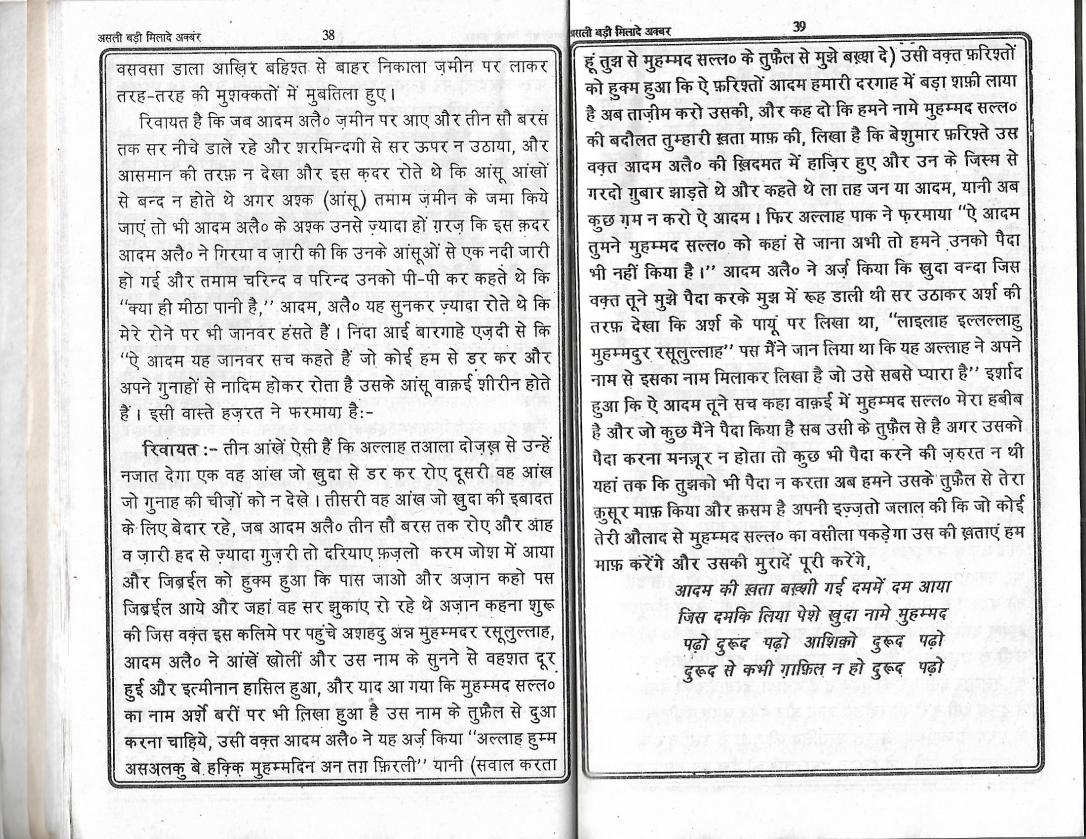 असली बड़ी मिलादे अक्बर 38
वसवसा डाला आख़िर बहिश्त से बाहर निकाला ज़मीन पर लाकर
तरह-तरह की मुशक्कतों में मुबतिला हुए।
रिवायत है कि जब आदम अलै० ज़मीन पर आए और तीन सौ बरस
तक सर नीचे डाले रहे और शरमिन्दगी से सर ऊपर न उठाया, और
आसमान की तरफ़ न देखा और इस क़दर रोते थे कि आंसू आंखों
से बन्द न होते थे अगर अश्क (आंसू) तमाम ज़मीन के जमा किये
जाएं तो भी आदम अलै० के अश्क उनसे ज़्यादा हों ग़रज़ कि इस क़दर
आदम अलै० ने गिरया व ज़ारी की कि उनके आंसूओं से एक नदी जारी
हो गई और तमाम चरिन्द व परिन्द उनको पी-पी कर कहते थे कि
“क्या ही मीठा पानी है,” आदम, अलै० यह सुनकर ज़्यादा रोते थे कि
मेरे रोने पर भी जानवर हंसते हैं। निदा आई बारगाहे एज़दी से कि
“ऐ आदम यह जानवर सच कहते हैं जो कोई हम से डर कर और
अपने गुनाहों से नादिम होकर रोता है उसके आंसू वाक़ई शीरीन होते
हैं। इसी वास्ते हज़रत ने फरमाया है:-
रिवायत :- तीन आंखें ऐसी हैं कि अल्लाह तआला दोज़ख़ से उन्हें
नजात देगा एक वह आंख जो खुदा से डर कर रोए दूसरी वह आंख
जो गुनाह की चीज़ों को न देखे। तीसरी वह आंख जो खुदा की इबादत
के लिए बेदार रहे, जब आदम अलै० तीन सौ बरस तक रोए और आह
व ज़ारी हद से ज़्यादा गुज़री तो दरियाए फ़ज़लो करम जोश में आया
और जिब्रईल को हुक्म हुआ कि पास जाओ और अज़ान कहो पस
जिब्रईल आये और जहां वह सर झुकाए रो रहे थे अज़ान कहना शुरू
की जिस वक्त इस कलिमे पर पहुंचे अशहदु अन्न मुहम्मदर रसूलुल्लाह,
आदम अलै० ने आंखें खोलीं और उस नाम के सुनने से वहशत दूर
हुई और इत्मीनान हासिल हुआ, और याद आ गया कि मुहम्मद सल्ल०
का नाम अर्शे बरीं पर भी लिखा हुआ है उस नाम के तुफ़ैल से दुआ
करना चाहिये, उसी वक्त आदम अलै० ने यह अर्ज़ किया “अल्लाह हुम्म
असअलकु बे हक्कि मुहम्मदिन अन तग़ फ़िरली” यानी (सवाल करता
असली बड़ी मिलादे अक्बर 39
हूं तुझ से मुहम्मद सल्ल० के तुफ़ैल से मुझे बख़्श दे) उसी वक़्त फ़रिश्तों
को हुक्म हुआ कि ऐ फ़रिश्तों आदम हमारी दरगाह में बड़ा शफ़ी लाया
है अब ताज़ीम करो उसकी, और कह दो कि हमने नामे मुहम्मद सल्ल०
की बदौलत तुम्हारी ख़ता माफ़ की, लिखा है कि बेशुमार फ़रिश्ते उस
वक़्त आदम अलै० की ख़िदमत में हाज़िर हुए और उन के जिस्म से
गरदो गुबार झाड़ते थे और कहते थे ला तह जन या आदम, यानी अब
कुछ ग़म न करो ऐ आदम। फिर अल्लाह पाक ने फ़रमाया “ऐ आदम
तुमने मुहम्मद सल्ल० को कहां से जाना अभी तो हमने उनको पैदा
भी नहीं किया है।” आदम अलै० ने अर्ज़ किया कि खुदा वन्दा जिस
वक़्त तूने मुझे पैदा करके मुझ में रूह डाली थी सर उठाकर अर्श की
तरफ़ देखा कि अर्श के पायूं पर लिखा था, “लाइलाह इल्लल्लाहु
मुहम्मदुर रसूलुल्लाह” पस मैंने जान लिया था कि यह अल्लाह ने अपने
नाम से इसका नाम मिलाकर लिखा है जो उसे सबसे प्यारा है” इर्शाद
हुआ कि ऐ आदम तूने सच कहा वाक़ई में मुहम्मद सल्ल० मेरा हबीब
है और जो कुछ मैंने पैदा किया है सब उसी के तुफ़ैल से है अगर उसको
पैदा करना मन्ज़ूर न होता तो कुछ भी पैदा करने की ज़रुरत न थी
यहां तक कि तुझको भी पैदा न करता अब हमने उसके तुफ़ैल से तेरा
कुसूर माफ़ किया और क़सम है अपनी इज़्ज़तो जलाल की कि जो कोई
तेरी औलाद से मुहम्मद सल्ल० का वसीला पकड़ेगा उस की ख़ताएं हम
माफ़ करेंगे और उसकी मुरादें पूरी करेंगे,
आदम की ख़ता बख़्शी गई दममें दम आया
जिस दमकि लिया पेशे खुदा नामे मुहम्मद
पढ़ो दुरूद पढ़ो आशिक़ो दुरूद पढ़ो
दुरूद से कभी ग़ाफ़िल न हो दुरूद पढ़ो